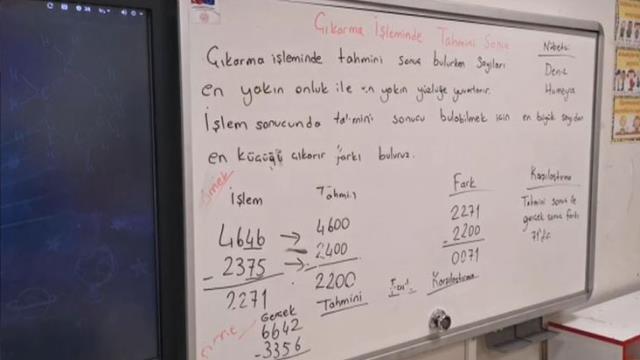 Çıkarma İşleminde Tahmini Sonuç
Çıkarma işleminde tahmini sonuç bulurken sayıları
en yakın onluk ile en yakın yüzlüğe yuvarlarız.
İşlem sonucunda tahmini sonucu bulabilmek için en büyük sayıdan
en küçüğü çıkarır farkı buluruz.
Nöbetçi
Deniz
Humeyra
Örnek
İşlem
4646 →
- 2375 →
2271
Tahmin
4600
- 2400
2200
Tahmini
Fark
2271
- 2200
0071
Fark = Karşılaştırma
Karşılaştırma
Tahmini sonuç ile
gerçek sonuç farkı
71'dir
Gerçek
6642
- 3356